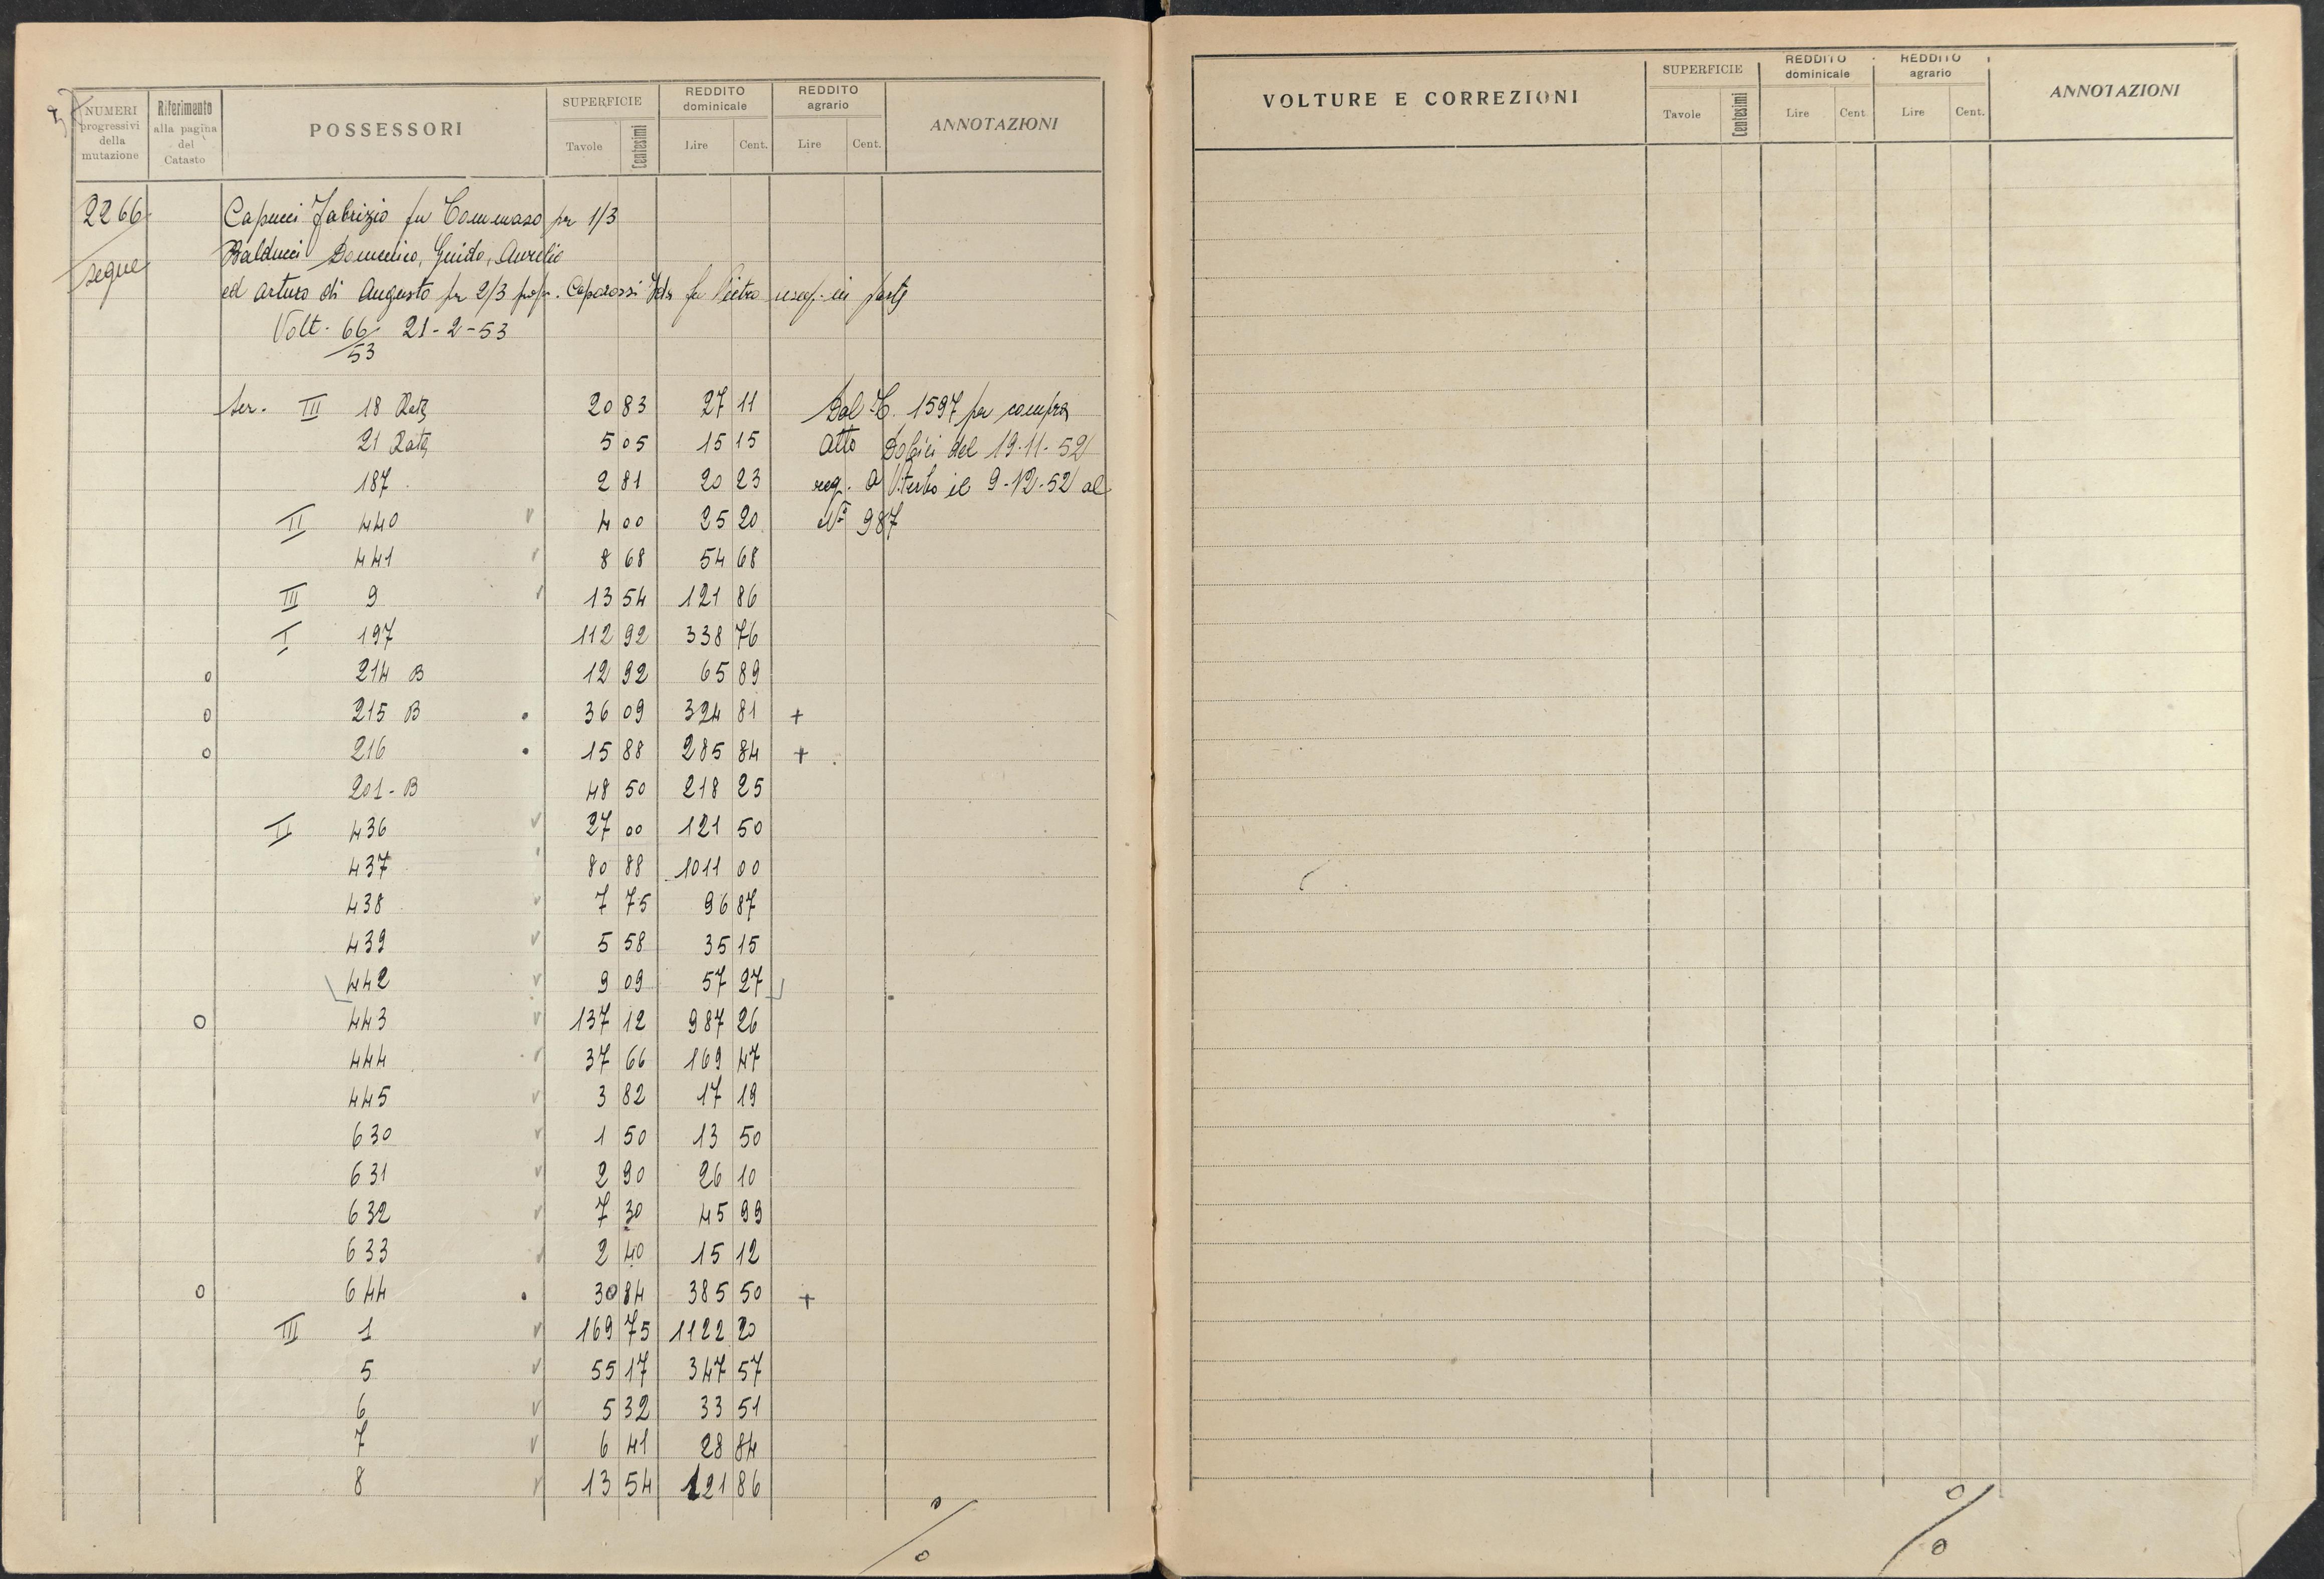 NUMERI progressivi della mutazione | Riferimento alla pagina del Catasto | POSSESSORI | SUPERFICIE Tavole Centesimi | REDDITO dominicale Lire Cent. | REDDITO agrario Lire Cent. | ANNOTAZIONI
2266 Capucci Fabrizio fu Tommaso per 1/3
segue Balducci Domenico, Guido, Aurelio
ed Arturo di Augusto per 2/3 propr. Caparossi Ida fu Pietro usuf. in parte
Volt. 66/53 21-2-53
Ser. III 18 Rata 20 83 27 11 Dal C. 1597 per compra
21 Rata 5 05 15 15 Atto del 19-11-52
187 2 81 20 23 reg. a Viterbo il 9-12-52 al
II 440 4 00 25 20 N° 987
441 8 68 54 68
III 9 13 54 121 86
I 197 112 92 338 76
o 214 B 12 92 65 89
o 215 B 36 09 324 81 +
o 216 15 88 285 84 +
201-B 48 50 218 25
II 436 27 00 121 50
437 80 88 1011 00
438 7 75 96 87
439 5 58 35 15
442 9 09 57 27
o 443 137 12 987 26
444 37 66 169 47
445 3 82 17 19
630 1 50 13 50
631 2 90 26 10
632 7 30 45 99
633 2 40 15 12
o 644 30 84 385 50 +
III 1 169 75 1122 20
5 55 17 347 57
6 5 32 33 51
7 6 41 28 84
8 13 54 121 86
o/o
VOLTURE E CORREZIONI | SUPERFICIE Tavole Centesimi | REDDITO dominicale Lire Cent. | REDDITO agrario Lire Cent. | ANNOTAZIONI
o/o